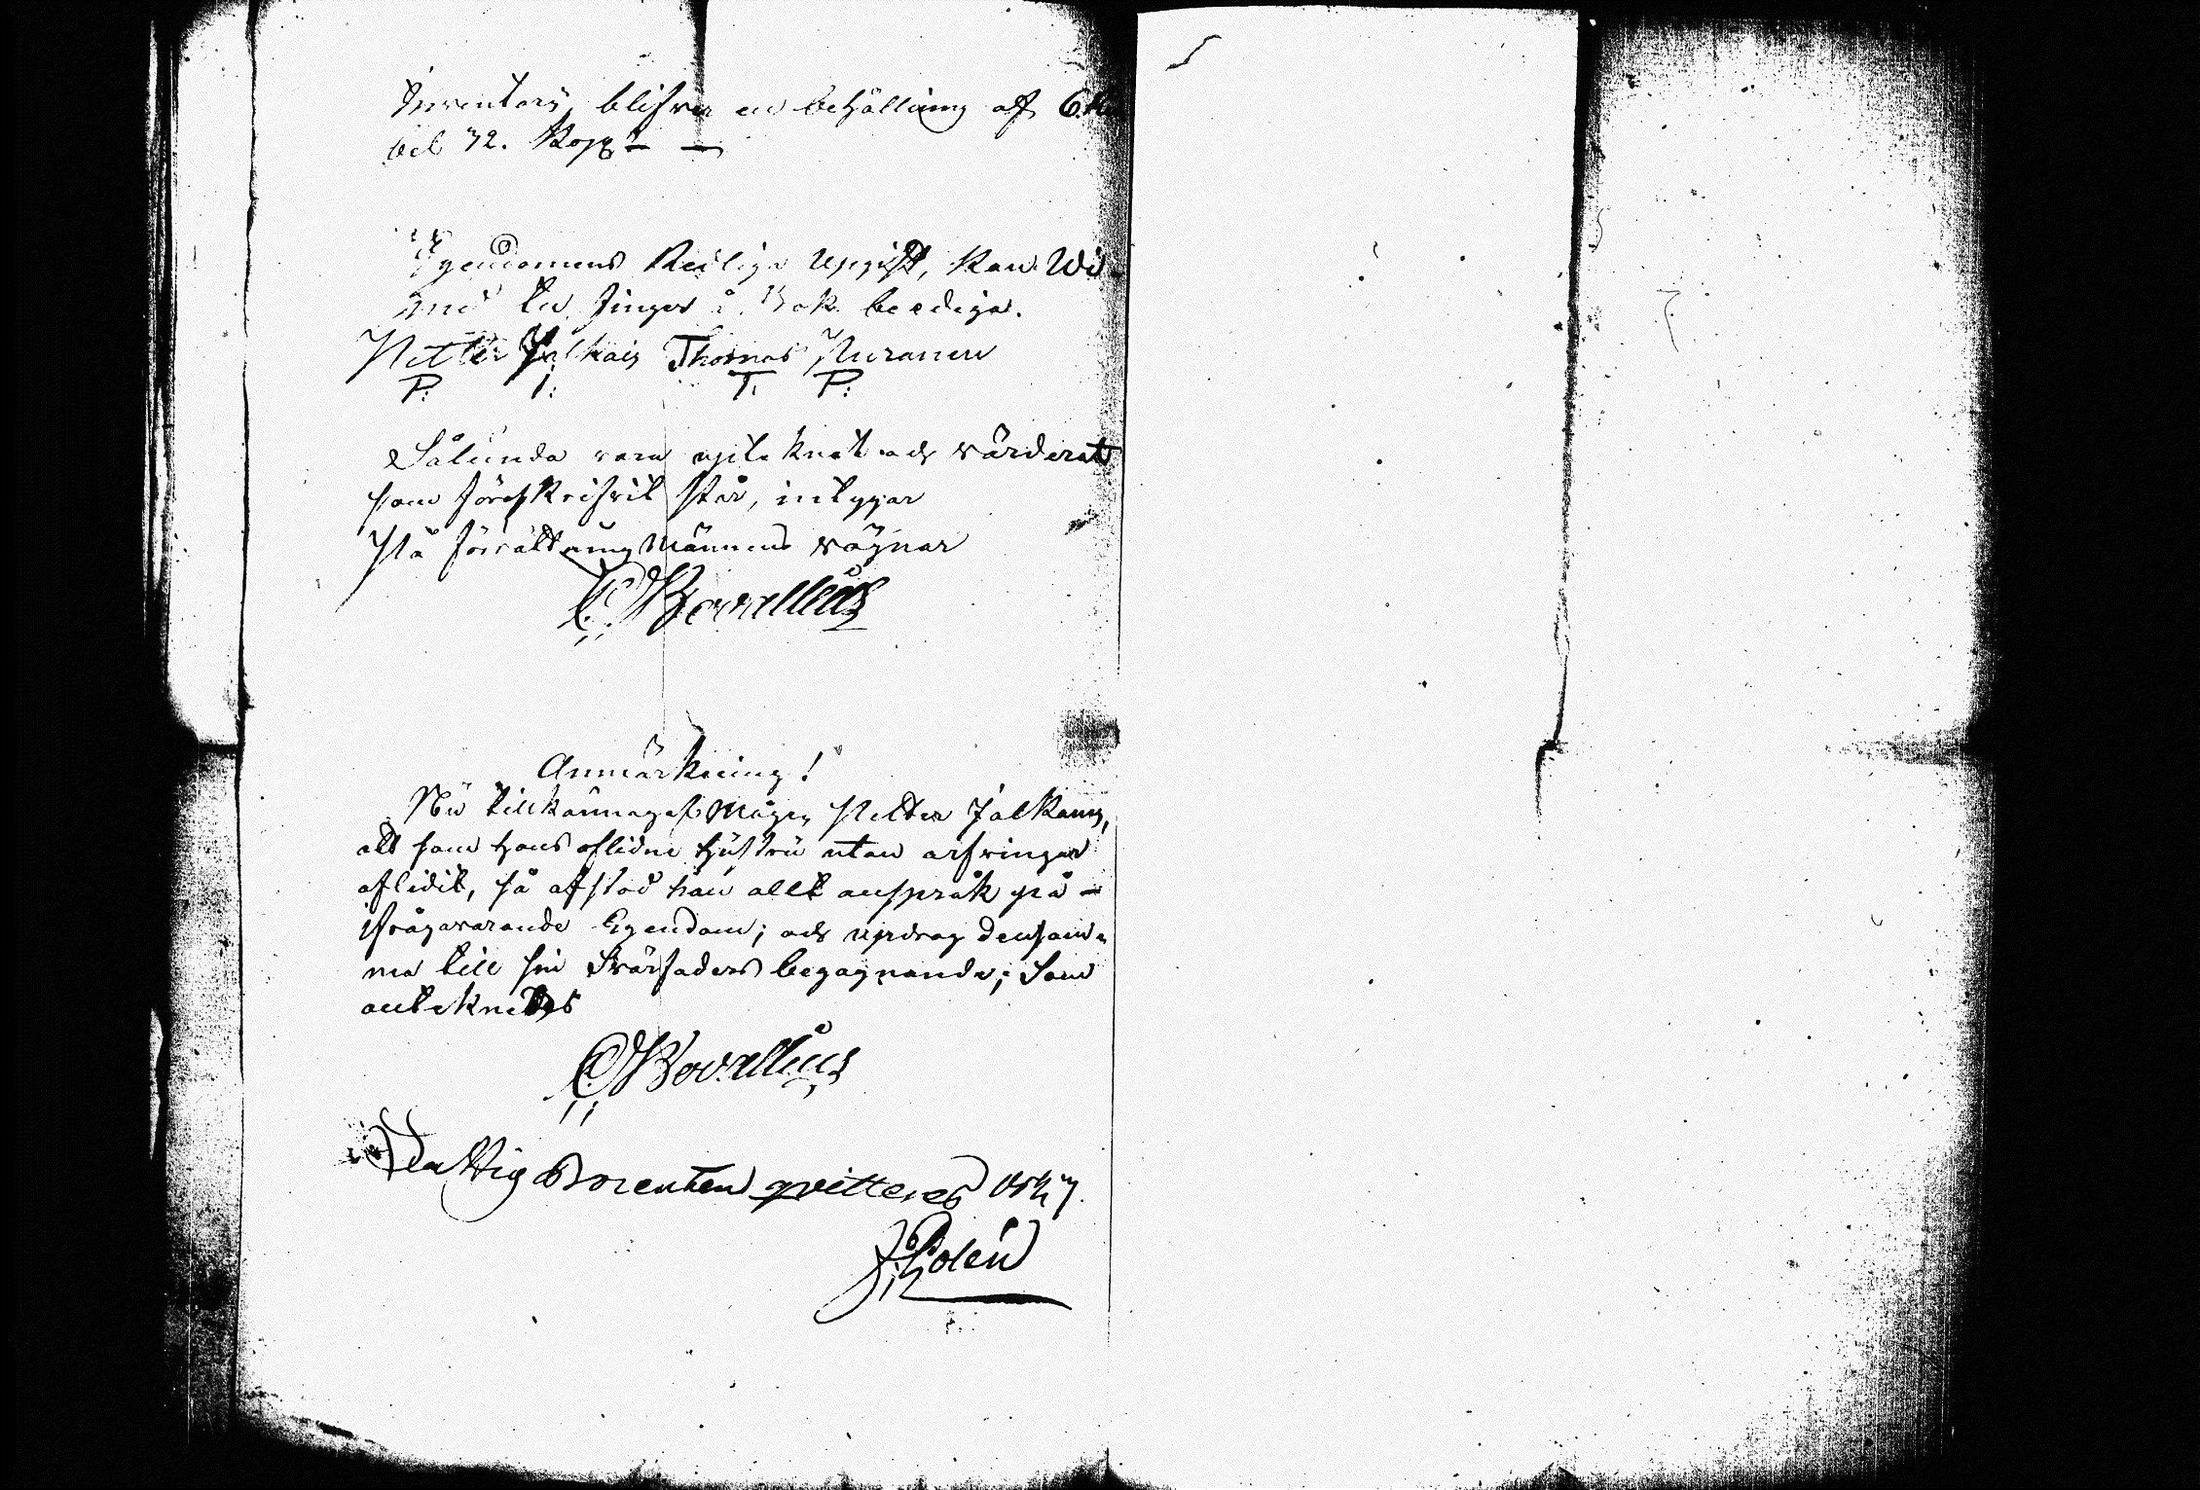 Inventarij, blifver en behållning af 6 Ru
bel 72. Kop:r
Egendomens Redliga Upgift, kan Wi
med Ed. finger å Bok beediga.
Petter Jalkain Thomas Puranen
P: I: T. P:
Sålunda vara upteknat och värderat
som föreskrifvit står, intygar
På förrättningsMännens vägnar
C: Bovellius
Anmärkning!
Nu tillkännagaf Mågen Petter Jalkain,
att som hans aflidne hustru utan arfvingar
aflidit, så afstod han allt anspråk på
ifrågavarande Egendom; och updrog densam-
ma till sin Svärfaders begagnande; Som
anteknades
C: Bovellius
Fattig Procenten qvitteras
J: Polén